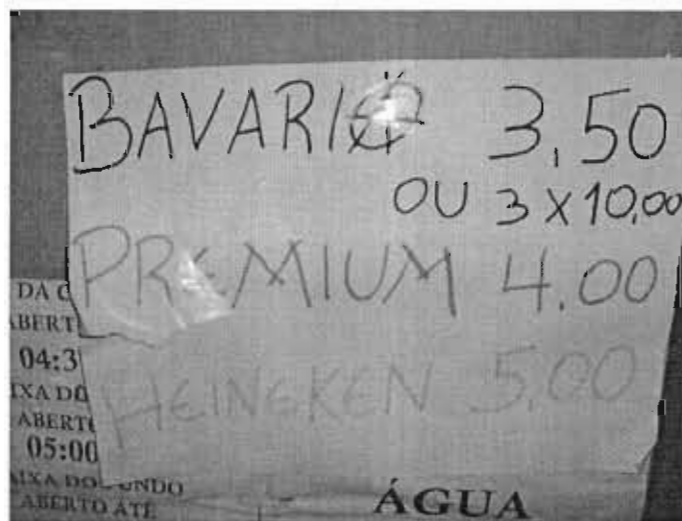 BAVARIA 3,50
OU 3 X 10,00
PREMIUM 4.00
HEINEKEN 5.00
DA
ABERT
04:3
IXA DO
ABERTO
05:00
AIXA DO FUNDO
ABERTO ATÉ
ÁGUA